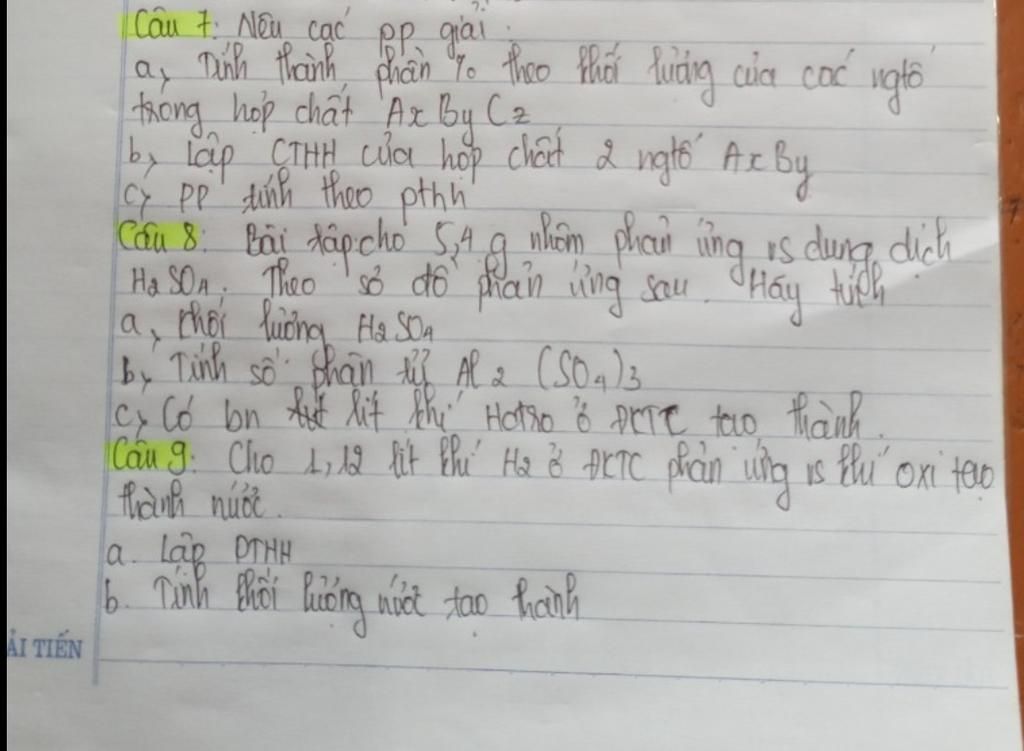 Câu 7: Nêu các pp giải.
a, Tính thành phần % theo khối lượng của các ngtố
trong hợp chất AxByCz
b, Lập CTHH của hợp chất 2 ngtố AxBy
c, PP tính theo pthh
Câu 8: Bài tập: cho 5,4 g nhôm phản ứng vs dung dịch
H2SO4. Theo sơ đồ phản ứng sau. Hãy tính
a, khối lượng H2SO4
b, Tính số phân tử Al2(SO4)3
c, Có bn lít khí Hđrô ở ĐKTC tạo thành.
Câu 9: Cho 1,12 lít khí H2 ở ĐKTC phản ứng vs khí oxi tạo
thành nước.
a. Lập PTHH
b. Tính khối lượng nước tạo thành
ẢI TIẾN